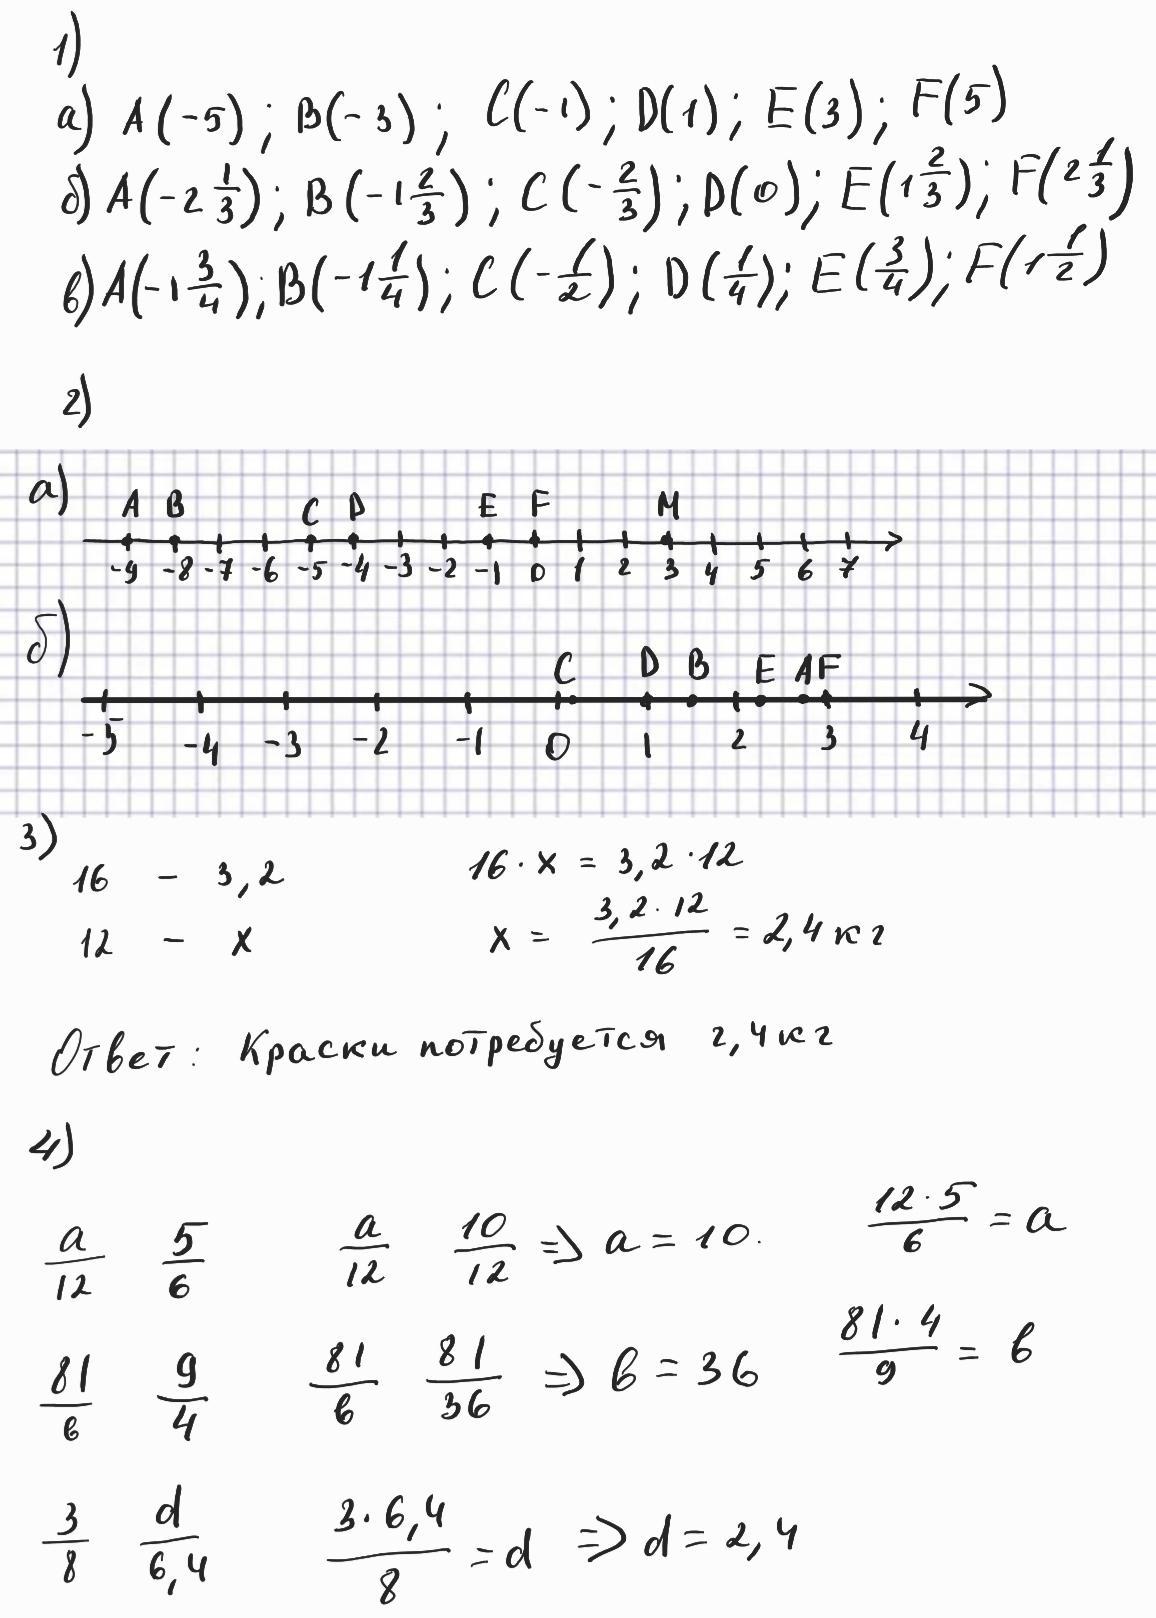 1)
а) A(-5); B(-3); C(-1); D(1); E(3); F(5)
б) A(-2 1/3); B(-1 2/3); C(-2/3); D(0); E(1 2/3); F(2 1/3)
в) A(-1 3/4); B(-1 1/4); C(-1/2); D(1/4); E(3/4); F(1 1/2)
2)
а) A B C D E F M
-9 -8 -7 -6 -5 -4 -3 -2 -1 0 1 2 3 4 5 6 7
б) C D B E A F
-5 -4 -3 -2 -1 0 1 2 3 4
3)
16 - 3,2 16·x = 3,2·12
12 - x x = 3,2·12/16 = 2,4 кг
Ответ: Краски потребуется 2,4 кг
4)
a/12 5/6 a/12 10/12 => a = 10. 12·5/6 = a
81/в 9/4 81/в 81/36 => в = 36 81·4/9 = в
3/8 d/6,4 3·6,4/8 = d => d = 2,4